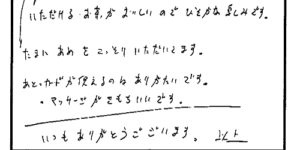 いただける お茶が おいしい ので ひそかな 楽しみです。
たまに あめ を こっそり いただいてます。
あと、カードが使えるのは ありがたいです。
・マッサージが とても いいです。
いつも ありがとうございます。 以上